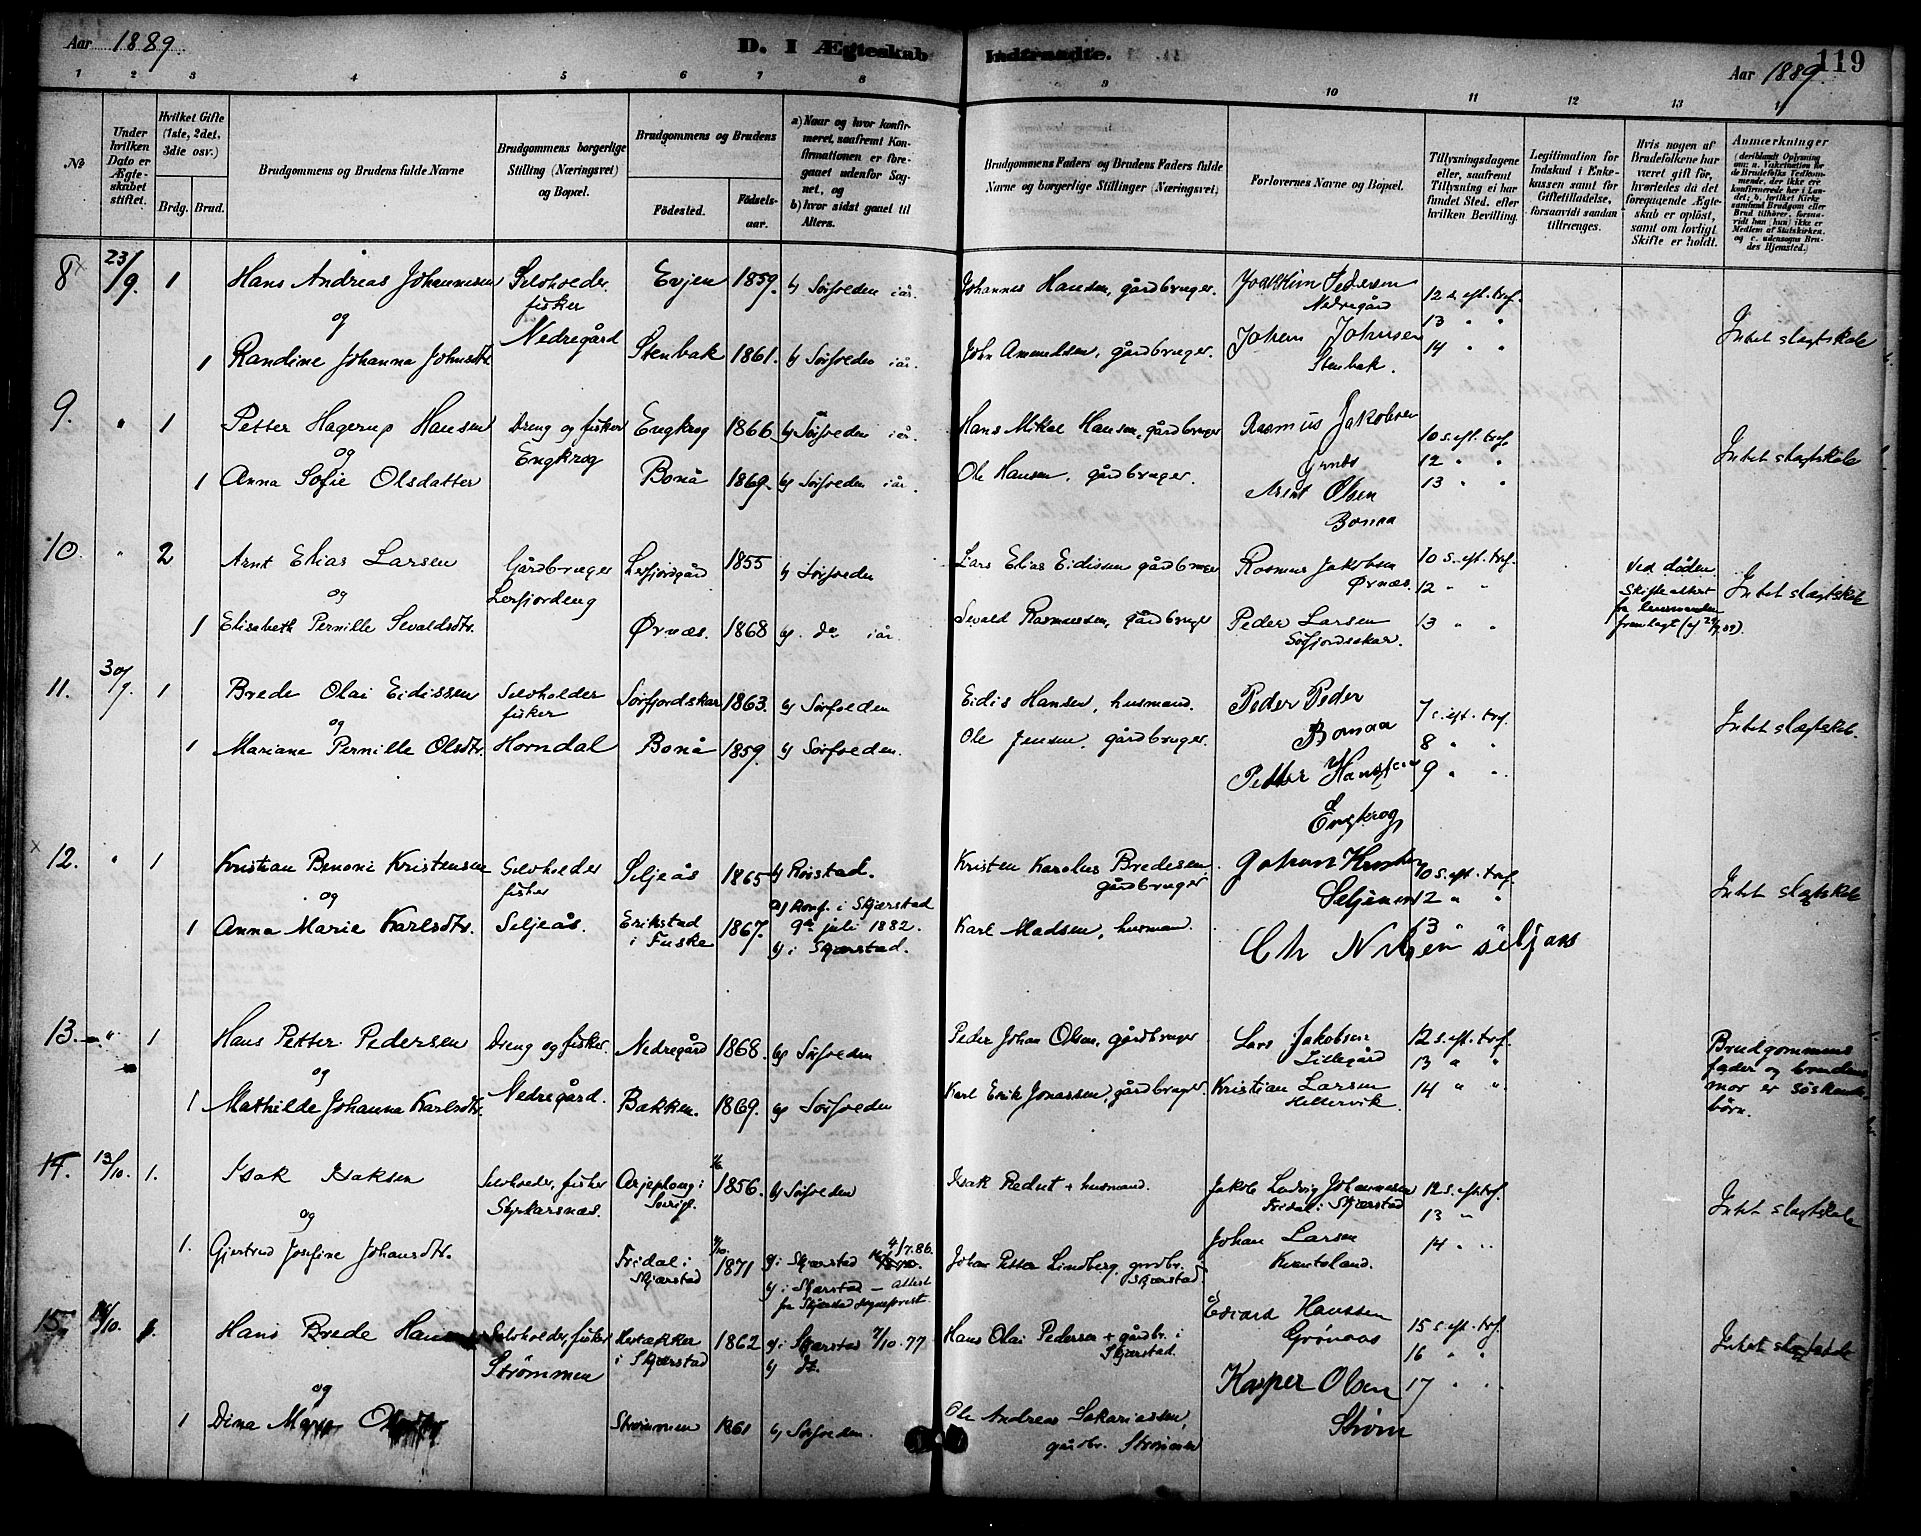 Aar 1889.
D. I Ægteskab Indtraadte.
Aar 1889.
119
1 2 3 4 5 6 7 8 9 10 11 12 13
No
Under hvilken Dato er Ægteskabet stiftet.
Hvilket Gifte (1ste, 2det, 3die osv.)
Brdg. Brud.
Brudgommens og Brudens fulde Navne
Brudgommens borgerlige Stilling (Næringsvei) og Bopæl.
Brudgommens og Brudens
Fødested.
Fødselsaar.
a) Naar og hvor konfirmeret, saafremt Konfirmationen er foregaaet udenfor Sognet, og
b) hvor sidst gaaet til Alters.
Brudgommens Faders og Brudens Faders fulde Navne og borgerlige Stillinger (Næringsvei)
Forlovernes Navne og Bopæl.
Tillysningsdagene eller, saafremt Tillysning ei har fundet Sted, efter hvilken Bevilling.
Legitimation for Indskud i Enkekassen samt for Giftetilladelse, forsaavidt saadan tiltrænges.
Hvis nogen af Brudefolkene har været gift før, hvorledes da det foregaaende Ægteskab er opløst, samt om lovligt Skifte er holdt.
Anmerkninger
8 23/9. 1 Hans Andreas Johannesen Selvholder fisker Evjen 1859. b) Sørfolden iår. Johannes Hansen, gårdbruger. Joakkim Pedersen Nedregård 12 s. eft. tref.
og Nedregård 13 " "
1 Randine Johanna Johnsdtr. Stenbak 1861. b) Sørfolden iår. John Amundsen, gårdbruger. Johan Johnsen Stenbak. 14 " " Intet slægtskab
9. " 1 Petter Hagerup Hansen Dreng og fisker Engkrog 1866 b) Sørfolden iår. Hans Mikal Hansen, gårdbruger Rasmus Jakobsen 10 s. eft. tref.
og Engkrog Ørnes 12 " " Intet slægtskab
1 Anna Sofie Olsdatter Bonå 1869. b) Sørfolden iår. Ole Hansen, gårdbruger. Arnt Olsen Bonaa 13 " "
10. " 2 Arnt Elias Larsen Gårdbruger Lerfjordgård 1855 b) Sørfolden Lars Elias Eidissen gårdbruger Rasmus Jakobsen Ørnæs. 10 s. eft. tref. Ved døden. Intet slægtskab
og Lerfjordeng 12 " " Skifteattest fra lensmanden
1 Elisabeth Pernille Sevaldsdtr. Ørnæs. 1868 b) do iår. Sevald Rasmussen, gårdbruger Peder Larsen Sørfjordskar. 13 " " fremlagt
11. 30/9. 1 Brede Olai Eidissen Selvholder fisker Sørfjordskar 1863. b) Sørfolden Eidis Hansen, husmand. Peder Peder Bonaa 7 s. eft. tref.
og 8 " " Intet slægtskab.
1 Mariane Pernille Olsdtr. Horndal Bonå 1859. b) Sørfolden. Ole Jensen, gårdbruger. Petter Hanssen Engkrog 9 " "
12. " 1 Kristian Benoni Kristensen Selvholder fisker Seljeås 1865 b) Rørstad. Kristen Karolus Bredesen. gårdbruger Johan 10 s. eft. tref.
og a) Konf. i Skjærstad 12 " " Intet slægtskab
1 Anna Marie Karlsdtr. Seljeås. Erikstad i Fuske 1867. 9de juli 1882. b) i Skjærstad. Karl Madsen, husmand. 13 "
13. " 1 Hans Petter Pedersen Dreng og fisker. Nedregård 1868. b) Sørfolden Peder Johan Olsen, gårdbruger Lars Jakobsen Lillegård 12 s. eft. tref. Brudgommens
og Nedregård. 13 " " fader og brudens
1 Mathilde Johanna Karlsdtr. Bakken. 1869. b) Sørfolden Karl Erik Jonassen, gårdbruger Kristian Larsen 14 " " mor er søskendebørn.
14. 13/10. 1. Isak Isaksen Selvholder, fisker Arjeplong i Sverige. 1856. b) Sørfolden Isak Pedut + husmand. Jakob Ludvig Johannesen Fridal i Skjærstad 12 s. eft. tref.
og Styrkarsnæs. 13 " Intet slægtskab
1. Gjertrud Josefine Johansdtr. Fridal i Skjærstad 1871 a) i Skjærstad 4/7.86. b) i Skjærstad – attest fra Skjærstad sogneprest. Johan Petter Lindberg, grdbr. Skjærstad. Johan Larsen Kvantoland. 14 " "
15. Hans Brede Selvholder, fisker i Skjærstad 1862 a) i Skjærstad 7/10.77 Hans Olai Pedersen + gårdbr. i Skjærstad. Edvard Hanssen Grønaas 15 s. eft. tref.
Strømmen b) do. 16 " " Intet slægtskab
og Kasper Olsen Strøm 17 " "
1 Dina Strømmen 1861 b) Sørfolden. Ole Andreas Sakariassen, gårdbr. Strømmen